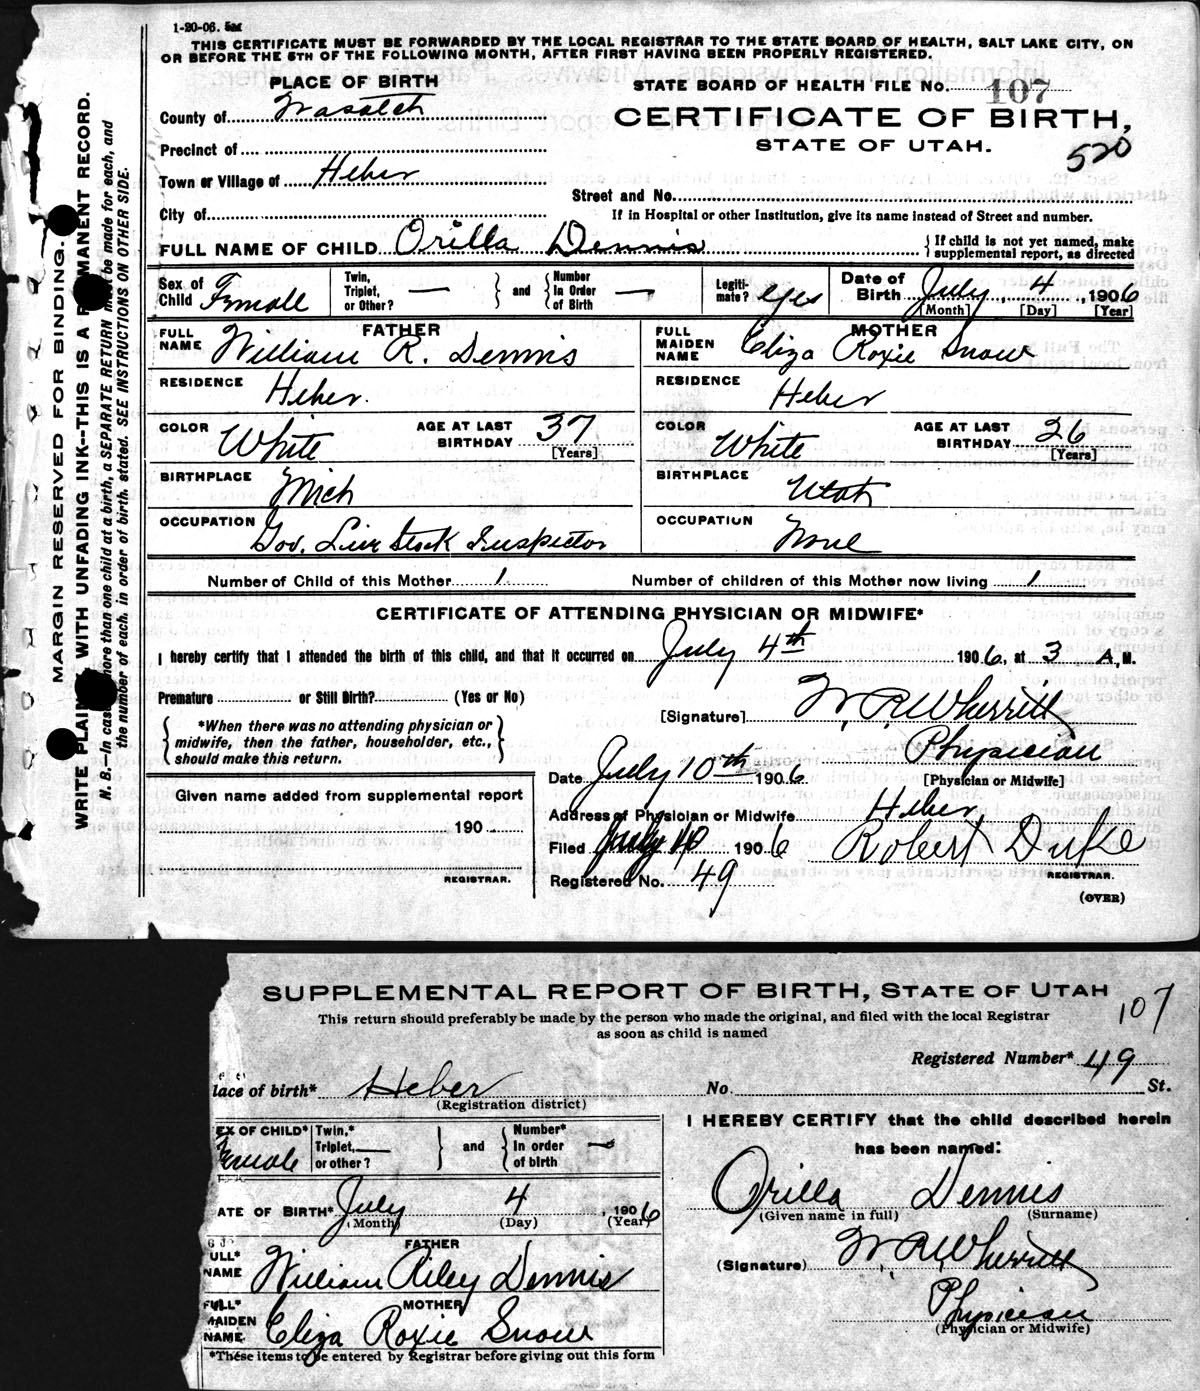 1-20-06.
THIS CERTIFICATE MUST BE FORWARDED BY THE LOCAL REGISTRAR TO THE STATE BOARD OF HEALTH, SALT LAKE CITY, ON
OR BEFORE THE 5TH OF THE FOLLOWING MONTH, AFTER FIRST HAVING BEEN PROPERLY REGISTERED.
PLACE OF BIRTH
STATE BOARD OF HEALTH FILE No. 107
County of Wasatch
CERTIFICATE OF BIRTH,
Precinct of
STATE OF UTAH.
520
Town or Village of Heber
Street and No.
City of
If in Hospital or other Institution, give its name instead of Street and number.
FULL NAME OF CHILD Orilla Dennis
{If child is not yet named, make
supplemental report, as directed
Sex of Child Female
Twin, Triplet, or Other? —
} and {
Number In Order of Birth —
Legiti-mate? yes
Date of Birth July 4, 1906
[Month] [Day] [Year]
FATHER
FULL NAME William R. Dennis
MOTHER
FULL MAIDEN NAME Eliza Roxie Snow
RESIDENCE Heber.
RESIDENCE Heber
COLOR White
AGE AT LAST BIRTHDAY 37
[Years]
COLOR White
AGE AT LAST BIRTHDAY 26
[Years]
BIRTHPLACE Mich
BIRTHPLACE Utah
OCCUPATION Gov. Live Stock Inspector
OCCUPATION None
Number of Child of this Mother 1
Number of children of this Mother now living 1
CERTIFICATE OF ATTENDING PHYSICIAN OR MIDWIFE*
I hereby certify that I attended the birth of this child, and that it occurred on July 4th 1906, at 3 A.M.
Premature or Still Birth? (Yes or No)
[Signature] W. R. Wherritt
{*When there was no attending physician or
midwife, then the father, householder, etc.,
should make this return.}
Physician
[Physician or Midwife]
Date July 10th 1906
Given name added from supplemental report
Address of Physician or Midwife Heber
190
Filed July 10 1906
Robert Duke
REGISTRAR.
REGISTRAR.
Registered No. 49
(OVER)
MARGIN RESERVED FOR BINDING.
WRITE PLAINLY WITH UNFADING INK--THIS IS A PERMANENT RECORD.
N. B.—In case more than one child at a birth, a SEPARATE RETURN must be made for each, and
the number of each, in order of birth, stated. SEE INSTRUCTIONS ON OTHER SIDE.
SUPPLEMENTAL REPORT OF BIRTH, STATE OF UTAH
107
This return should preferably be made by the person who made the original, and filed with the local Registrar
as soon as child is named
Registered Number* 49
lace of birth* Heber
No. St.
(Registration district)
EX OF CHILD* Female
Twin,* Triplet, or other?
} and {
Number* In order of birth —
I HEREBY CERTIFY that the child described herein
has been named:
Orilla Dennis
(Given name in full) (Surname)
ATE OF BIRTH* July 4, 1906
(Month) (Day) (Year)
FATHER
ULL* NAME William Riley Dennis
(Signature) W. R. Wherritt
MOTHER
FULL* MAIDEN NAME. Eliza Roxie Snow
Physician
(Physician or Midwife)
*These items to be entered by Registrar before giving out this form